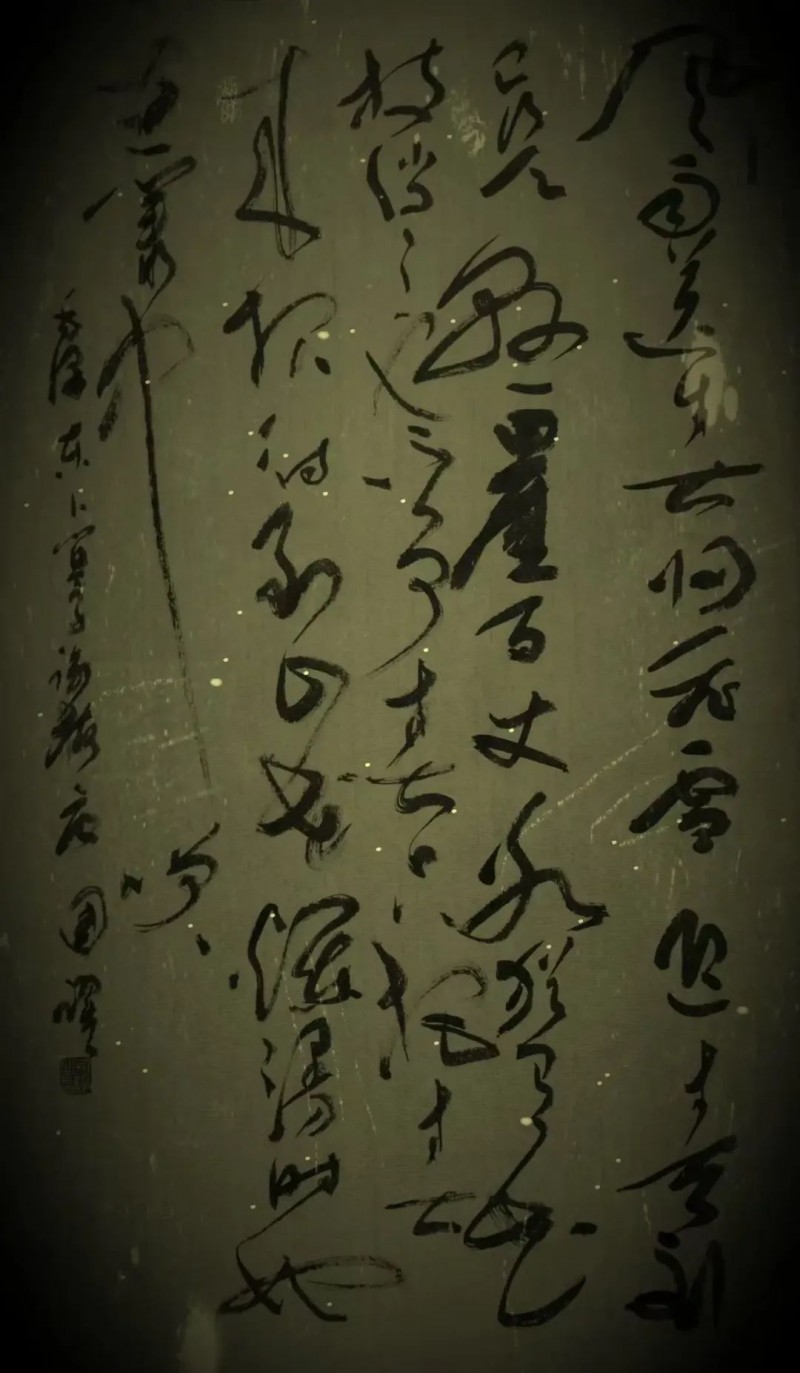 风雨送春归飞雪迎春到
已是悬崖百丈冰犹有花
枝俏々也不争春只把春
来报待到山花烂漫时她
在丛中笑
毛泽东卜算子咏梅